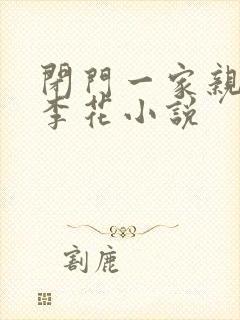 閉門一家親
李花小說
割鹿